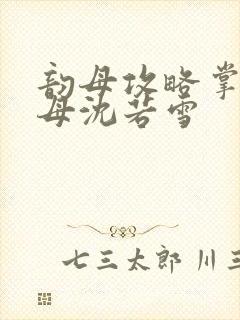 韵母攻略掌
母沈若雪
七三太郎 川三